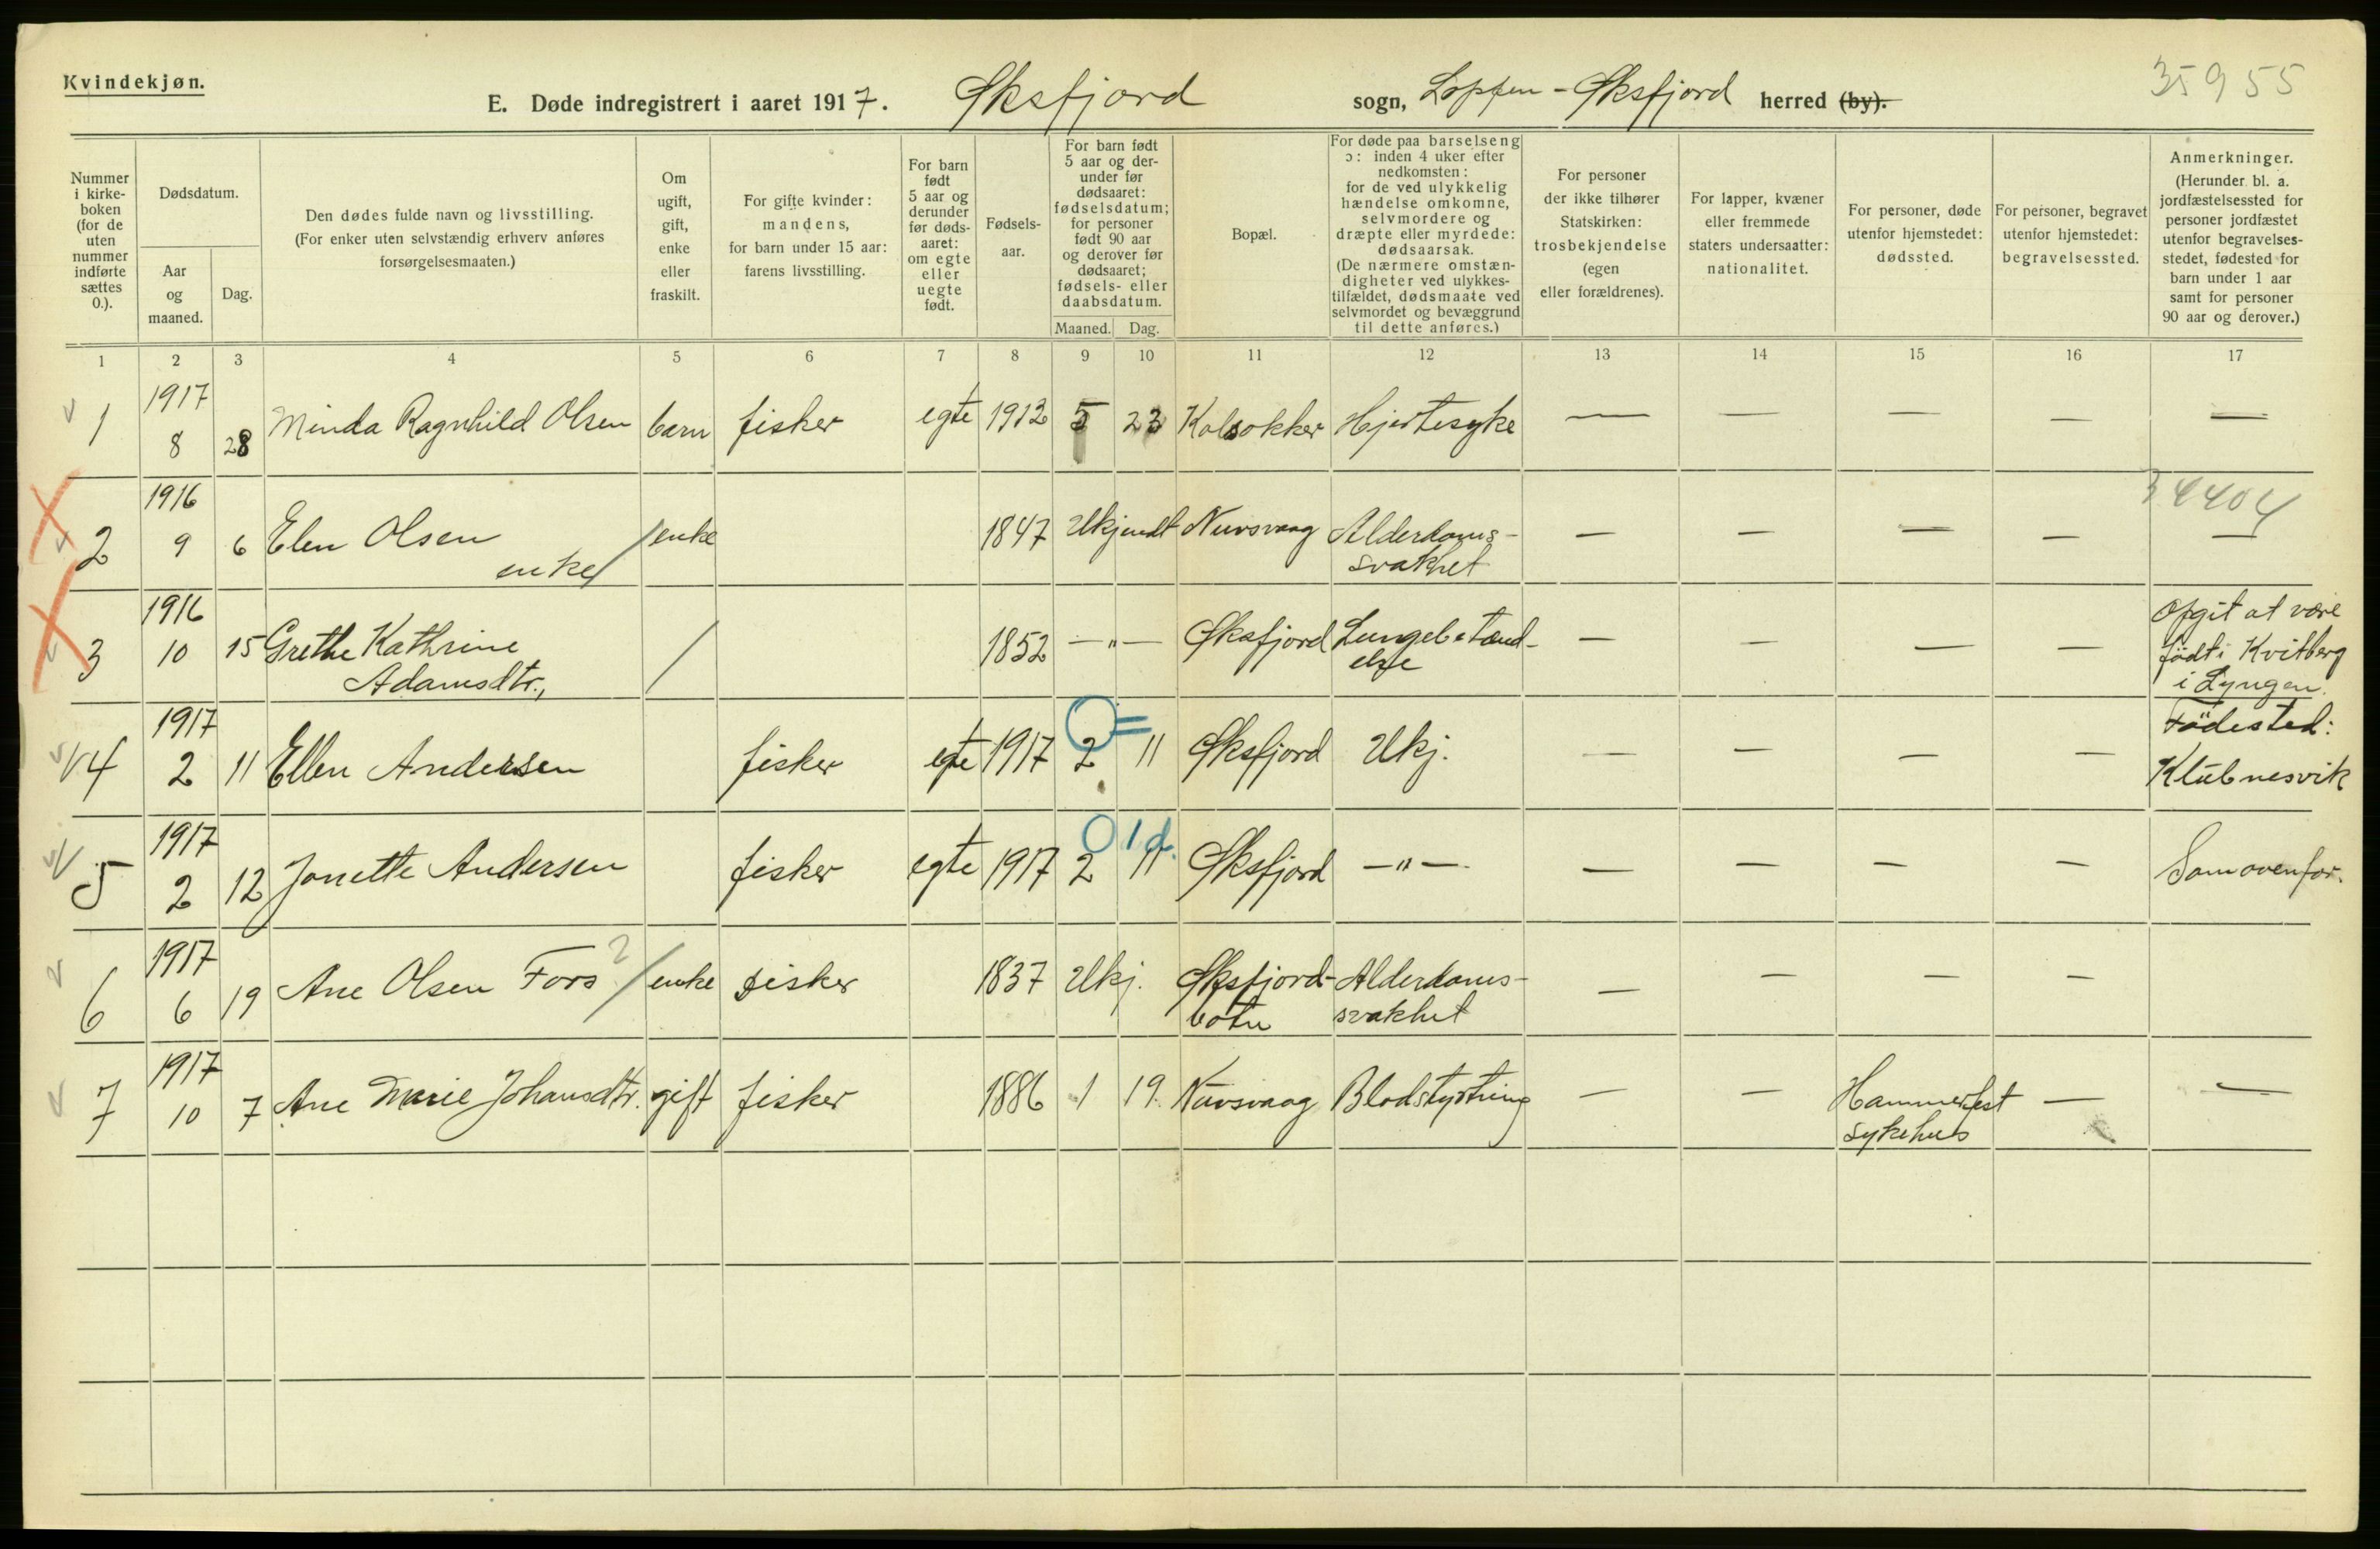 Kvindekjøn.
E. Døde indregistrert i aaret 1917. Øksfjord sogn, Loppen - Øksfjord herred (by).
35955
Nummer i kirkeboken (for de uten nummer indførte sættes 0.).
Dødsdatum.
Aar og maaned.
Dag.
Den dødes fulde navn og livsstilling.
(For enker uten selvstændig erhverv anføres forsørgelsesmaaten.)
Om ugift, gift, enke eller fraskilt.
For gifte kvinder: mandens, for barn under 15 aar: farens livsstilling.
For barn født 5 aar og derunder før dødsaaret: om egte eller uegte født.
Fødselsaar.
For barn født 5 aar og derunder før dødsaaret: fødselsdatum; for personer født 90 aar og derover før dødsaaret; fødsels- eller daabsdatum.
Maaned. Dag.
Bopæl.
For døde paa barselseng ɔ: inden 4 uker efter nedkomsten: for de ved ulykkelig hændelse omkomne, selvmordere og dræpte eller myrdede: dødsaarsak. (De nærmere omstændigheter ved ulykkestilfældet, dødsmaate ved selvmordet og bevæggrund til dette anføres.)
For personer der ikke tilhører Statskirken: trosbekjendelse (egen eller forældrenes).
For lapper, kvæner eller fremmede staters undersaatter: nationalitet.
For personer, døde utenfor hjemstedet: dødssted.
For personer, begravet utenfor hjemstedet: begravelsessted.
Anmerkninger. (Herunder bl. a. jordfæstelsessted for personer jordfæstet utenfor begravelsesstedet, fødested for barn under 1 aar samt for personer 90 aar og derover.)
1 2 3 4 5 6 7 8 9 10 11 12 13 14 15 16 17
1 1917 8 28 Minda Ragnhild Olsen barn fisker egte 1912 5 23 Kalsokker Hjertesyke — — — — —
34404
2 1916 9 6 Elen Olsen enke / enke 1847 Ukjendt Nuvsvaag Alderdoms-svakhet — — — — —
3 1916 10 15 Grethe Kathrine Adamsdtr., / 1852 —"— Øksfjord Lungebetændelse — — — — Opgit at være født i Kvitberg i Lyngen.
4 1917 2 11 Ellen Andersen fisker egte 1917 2 11 Øksfjord Ukj. — — — — Födested: Klubnesvik
0 1 d.
5 1917 2 12 Jonette Andersen fisker egte 1917 2 11 Øksfjord —"— — — — — Som ovenfor.
6 1917 6 19 Ane Olsen Fors ? / enke fisker 1837 Ukj. Øksfjord-botn Alderdoms-svakhet — — — —
7 1917 10 7 Ane Marie Johansdtr. gift fisker 1886 1 19. Nuvsvaag Blodstyrtning — — Hammerfest sykehus — —